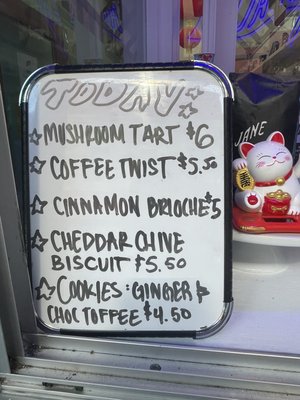 TODAY
MUSHROOM TART $6
COFFEE TWIST $5.50
CINNAMON BRIOCHE $5
CHEDDAR CHIVE
BISCUIT $5.50
COOKIES: GINGER &
CHOC TOFFEE $4.50
JANE